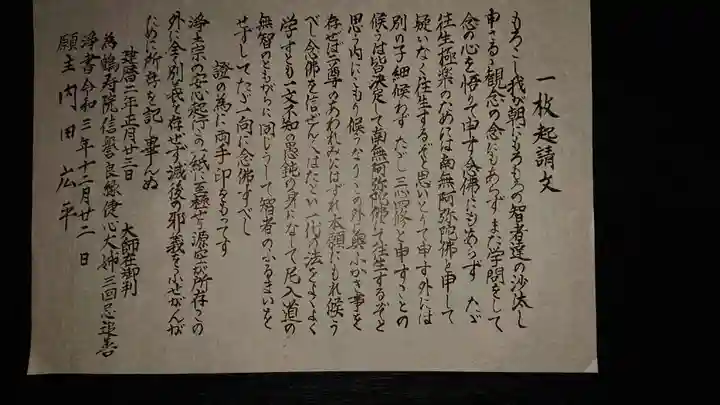 一枚起請文
もろこし我が朝にもろもろの智者達の沙汰し
申さるる観念の念にもあらずまた学問をして
念の心を悟りて申す念佛にもあらず ただ
往生極楽のためには南無阿弥陀佛と申して
疑いなく往生するぞと思いとりて申す外には
別の子細候わず ただし三心四修と申すことの
候うは皆決定して南無阿弥陀佛にて往生するぞと
思う内にこもり候うなりこの外に奥ふかき事を
存ぜば二尊のあわれみにはずれ本願にもれ候う
べし念佛を信ぜん人はたとい一代の法をよくよく
学すとも一文不知の愚鈍の身になして尼入道の
無智のともがらに同じうして智者のふるまいを
せずしてただ一向に念佛すべし
證の為に両手印をもってす
浄土宗の安心起行この一紙に至極せり源空が所存この
外に全く別義を存ぜず滅後の邪義をふせがんが
ために所存を記し畢んぬ
建暦二年正月廿三日 大師在御判
為鶴寿院信誉良縁健心大姉三回忌追善
浄書令和三年十二月廿二日
願主内田広平